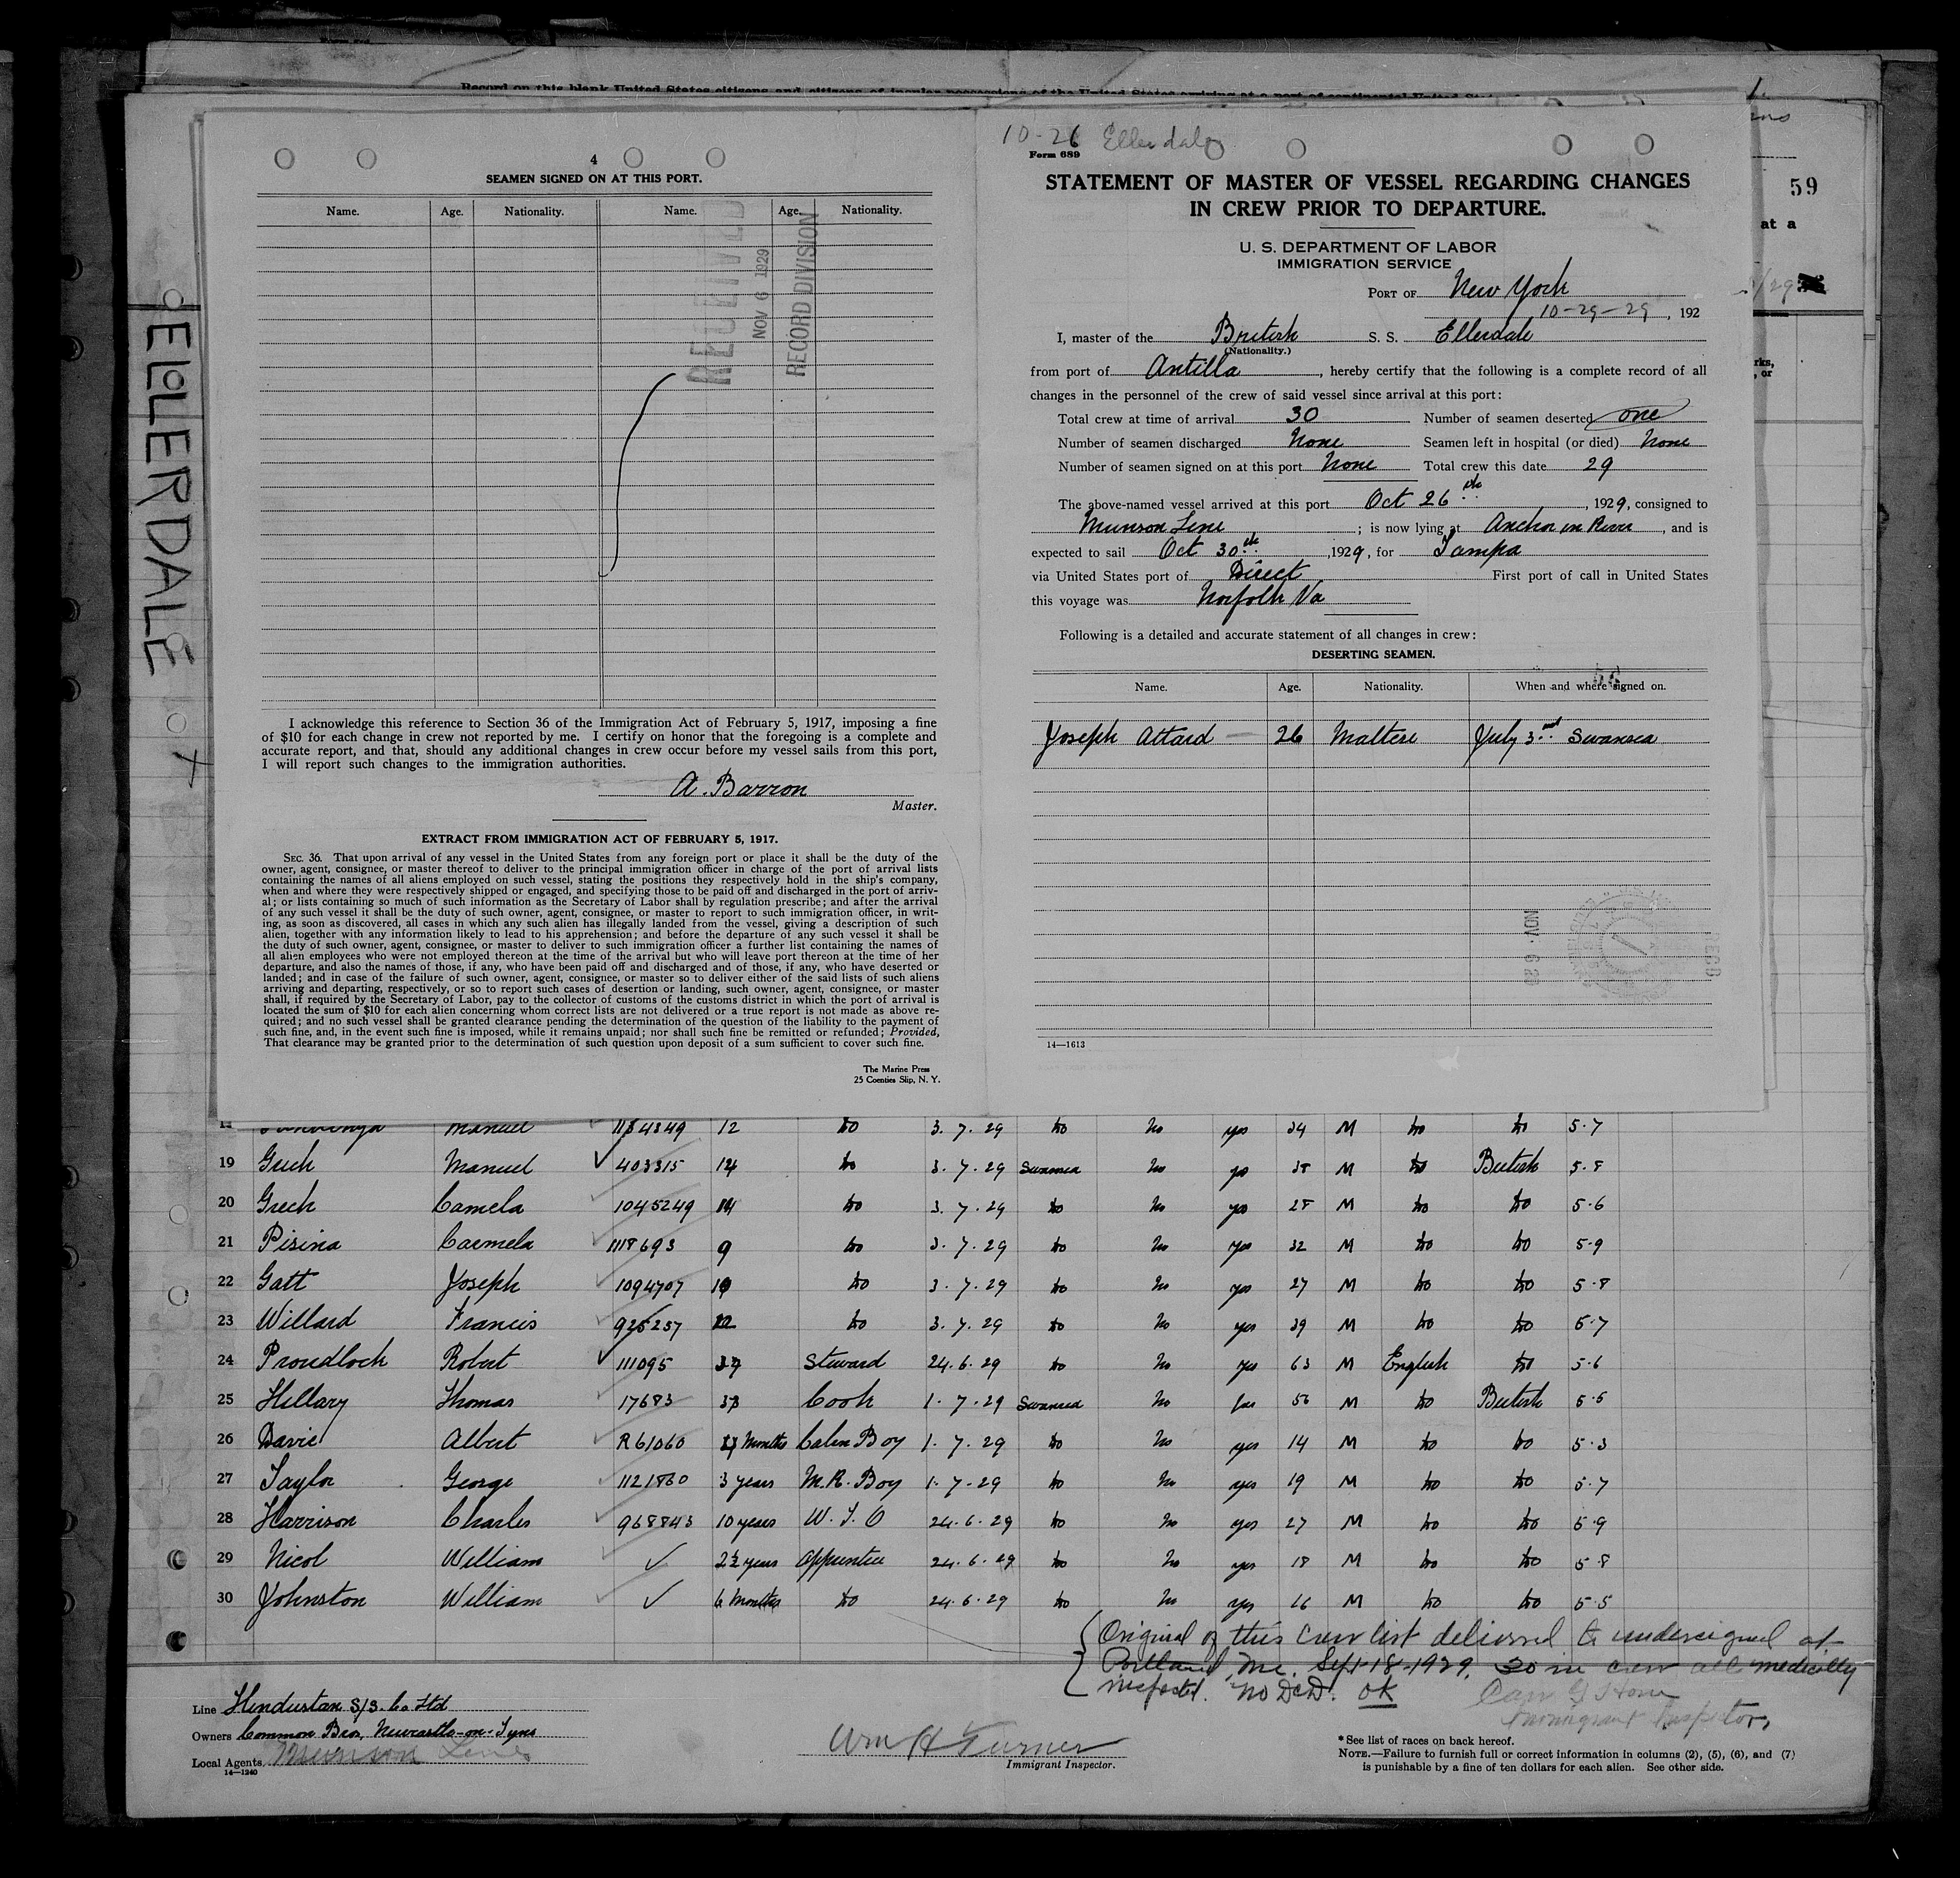 ELLERDALE
4
SEAMEN SIGNED ON AT THIS PORT.
Name. Age. Nationality. Name. Age. Nationality.
RECEIVED
NOV 6 1929
RECORD DIVISION
I acknowledge this reference to Section 36 of the Immigration Act of February 5, 1917, imposing a fine
of $10 for each change in crew not reported by me. I certify on honor that the foregoing is a complete and
accurate report, and that, should any additional changes in crew occur before my vessel sails from this port,
I will report such changes to the immigration authorities.
A. Barron
Master.
EXTRACT FROM IMMIGRATION ACT OF FEBRUARY 5, 1917.
SEC. 36. That upon arrival of any vessel in the United States from any foreign port or place it shall be the duty of the
owner, agent, consignee, or master thereof to deliver to the principal immigration officer in charge of the port of arrival lists
containing the names of all aliens employed on such vessel, stating the positions they respectively hold in the ship's company,
when and where they were respectively shipped or engaged, and specifying those to be paid off and discharged in the port of arriv-
al; or lists containing so much of such information as the Secretary of Labor shall by regulation prescribe; and after the arrival
of any such vessel it shall be the duty of such owner, agent, consignee, or master to report to such immigration officer, in writ-
ing, as soon as discovered, all cases in which any such alien has illegally landed from the vessel, giving a description of such
alien, together with any information likely to lead to his apprehension; and before the departure of any such vessel it shall be
the duty of such owner, agent, consignee, or master to deliver to such immigration officer a further list containing the names of
all alien employees who were not employed thereon at the time of the arrival but who will leave port thereon at the time of her
departure, and also the names of those, if any, who have been paid off and discharged and of those, if any, who have deserted or
landed; and in case of the failure of such owner, agent, consignee, or master so to deliver either of the said lists of such aliens
arriving and departing, respectively, or so to report such cases of desertion or landing, such owner, agent, consignee, or master
shall, if required by the Secretary of Labor, pay to the collector of customs of the customs district in which the port of arrival is
located the sum of $10 for each alien concerning whom correct lists are not delivered or a true report is not made as above re-
quired; and no such vessel shall be granted clearance pending the determination of the question of the liability to the payment of
such fine, and, in the event such fine is imposed, while it remains unpaid; nor shall such fine be remitted or refunded; Provided,
That clearance may be granted prior to the determination of such question upon deposit of a sum sufficient to cover such fine.
The Marine Press
25 Coenties Slip, N. Y.
10-26 Ellerdale
Form 689
STATEMENT OF MASTER OF VESSEL REGARDING CHANGES
IN CREW PRIOR TO DEPARTURE.
U. S. DEPARTMENT OF LABOR
IMMIGRATION SERVICE
PORT OF New York
10-29-29, 192
I, master of the British S. S. Ellerdale
(Nationality.)
from port of Antilla, hereby certify that the following is a complete record of all
changes in the personnel of the crew of said vessel since arrival at this port:
Total crew at time of arrival 30 Number of seamen deserted one
Number of seamen discharged None Seamen left in hospital (or died) None
Number of seamen signed on at this port None Total crew this date 29
The above-named vessel arrived at this port Oct 26th, 1929, consigned to
Munson Line; is now lying at Anchor in River, and is
expected to sail Oct 30th, 1929, for Tampa
via United States port of Direct First port of call in United States
this voyage was Norfolk Va
Following is a detailed and accurate statement of all changes in crew:
DESERTING SEAMEN.
Name. Age. Nationality. When and where signed on.
Joseph Attard 26 Maltese July 3rd Swansea
NOV 6 29
14—1613
59
at a
Manuel 1184349 12 do 3.7.29 do No yes 34 M do do 5.7
19 Grech Manuel 403315 14 do 3.7.29 Swansea No yes 38 M do British 5.8
20 Grech Camela 1045249 14 do 3.7.29 do No yes 28 M do do 5.6
21 Pisina Carmela 1118693 9 do 3.7.29 do No yes 32 M do do 5.9
22 Gatt Joseph 1094707 10 do 3.7.29 do No yes 27 M do do 5.8
23 Willard Francis 925257 22 do 3.7.29 do No yes 39 M do do 5.7
24 Proudlock Robert 111095 37 Steward 24.6.29 do No yes 63 M English do 5.6
25 Hillary Thomas 17683 33 Cook 1.7.29 Swansea No yes 56 M do British 5.5
26 Davie Albert R61060 Months Cabin Boy 1.7.29 do No yes 14 M do do 5.3
27 Taylor George 1121860 3 years M.R. Boy 1.7.29 do No yes 19 M do do 5.7
28 Harrison Charles 968843 10 years W.T.O 24.6.29 do No yes 27 M do do 5.9
29 Nicol William 2½ years Apprentice 24.6.29 do No yes 18 M do do 5.8
30 Johnston William 6 Months do 24.6.29 do No yes 16 M do do 5.5
Original of this Crew list delivered to undersigned at
Portland, Me. Sept-18-1929. 30 in crew all medically
inspected. No D&D. OK
Immigrant Inspector
Line Hindustan S/S. Co Ltd
Owners Common Bros, Newcastle-on-Tyne
Local Agents Munson Line
14—1240
Wm H Turner
Immigrant Inspector.
*See list of races on back hereof.
NOTE.—Failure to furnish full or correct information in columns (2), (5), (6), and (7)
is punishable by a fine of ten dollars for each alien. See other side.